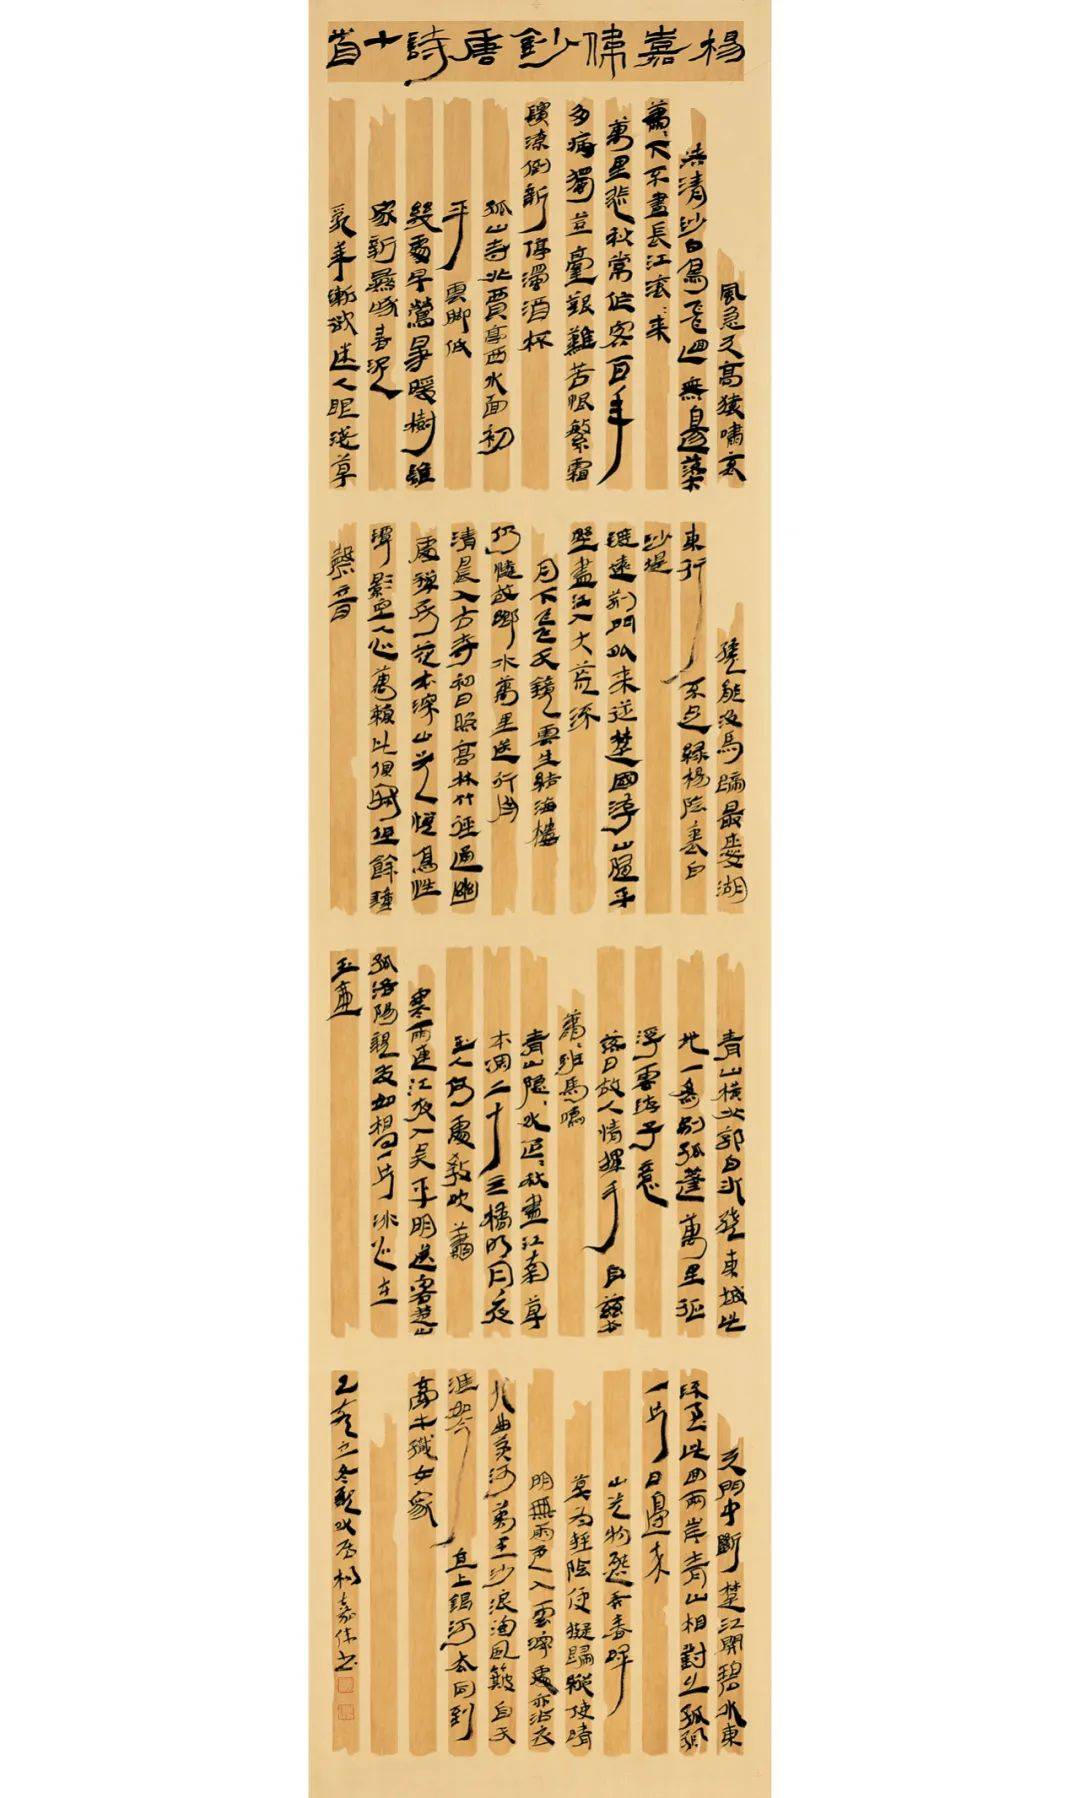 楊嘉偉鈔唐詩十首
風急天高猿嘯哀
渚清沙白鳥飛迴無邊落木
蕭〻下不盡長江滾〻來
萬里悲秋常作客百年
多病獨登臺艱難苦恨繁霜
鬢潦倒新停濁酒杯
孤山寺北賈亭西水面初
平雲腳低
幾處早鶯爭暖樹誰
家新燕啄春泥
亂花漸欲迷人眼淺草
纔能沒馬蹄最愛湖
東行不足綠楊陰裏白
沙堤
渡遠荊門外來從楚國遊山隨平
野盡江入大荒流
月下飛天鏡雲生結海樓
仍憐故鄉水萬里送行舟
清晨入古寺初日照高林竹徑通幽
處禪房花木深山光悅鳥性
潭影空人心萬籟此俱寂但餘鐘
磬音
青山橫北郭白水繞東城此
地一為別孤蓬萬里征
浮雲游子意
落日故人情揮手自茲去
蕭〻班馬鳴
青山隱〻水迢〻秋盡江南草
木凋二十四橋明月夜
玉人何處教吹簫
寒雨連江夜入吳平明送客楚山
孤洛陽親友如相問一片冰心在
玉壺
天門中斷楚江開碧水東
流至此迴兩岸青山相對出孤帆
一片日邊來
山光物態弄春暉
莫為輕陰便擬歸縱使晴
明無雨色入雲深處亦沾衣
九曲黃河萬里沙浪淘風簸自天
涯如今直上銀河去同到
牽牛織女家
己亥立冬楊嘉偉書